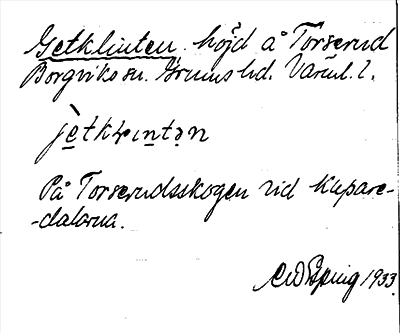 Getklinten. höjd å Torserud
Borgviks sn. Grums hd. Värml. l.
jètkḷιntən
På Torserudsskogen vid Kupare-
-dalarna.
1933.